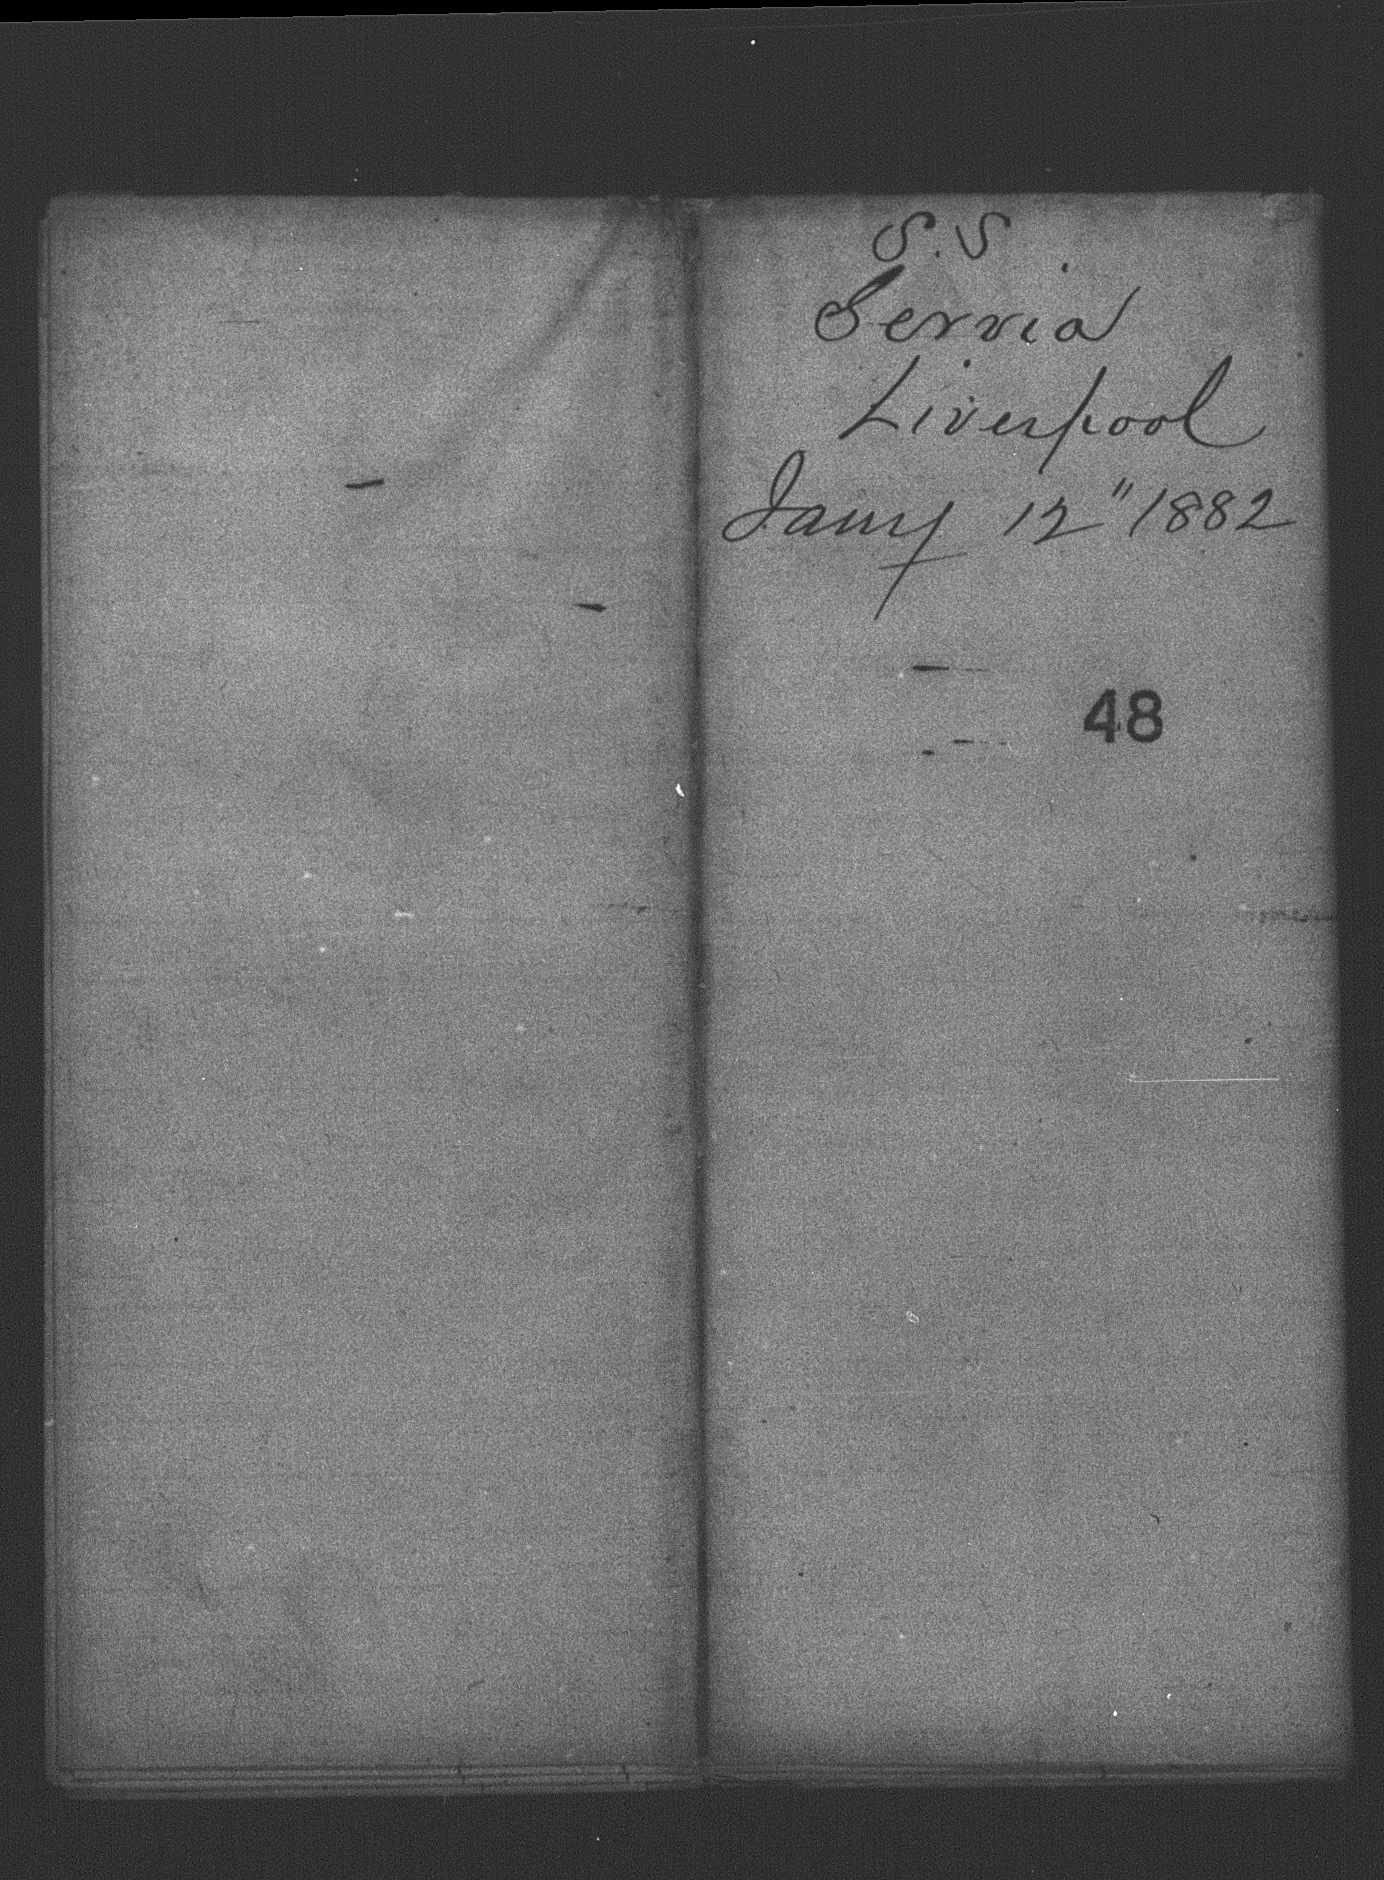 S.S.
Servia
Liverpool
Jany 12" 1882
48